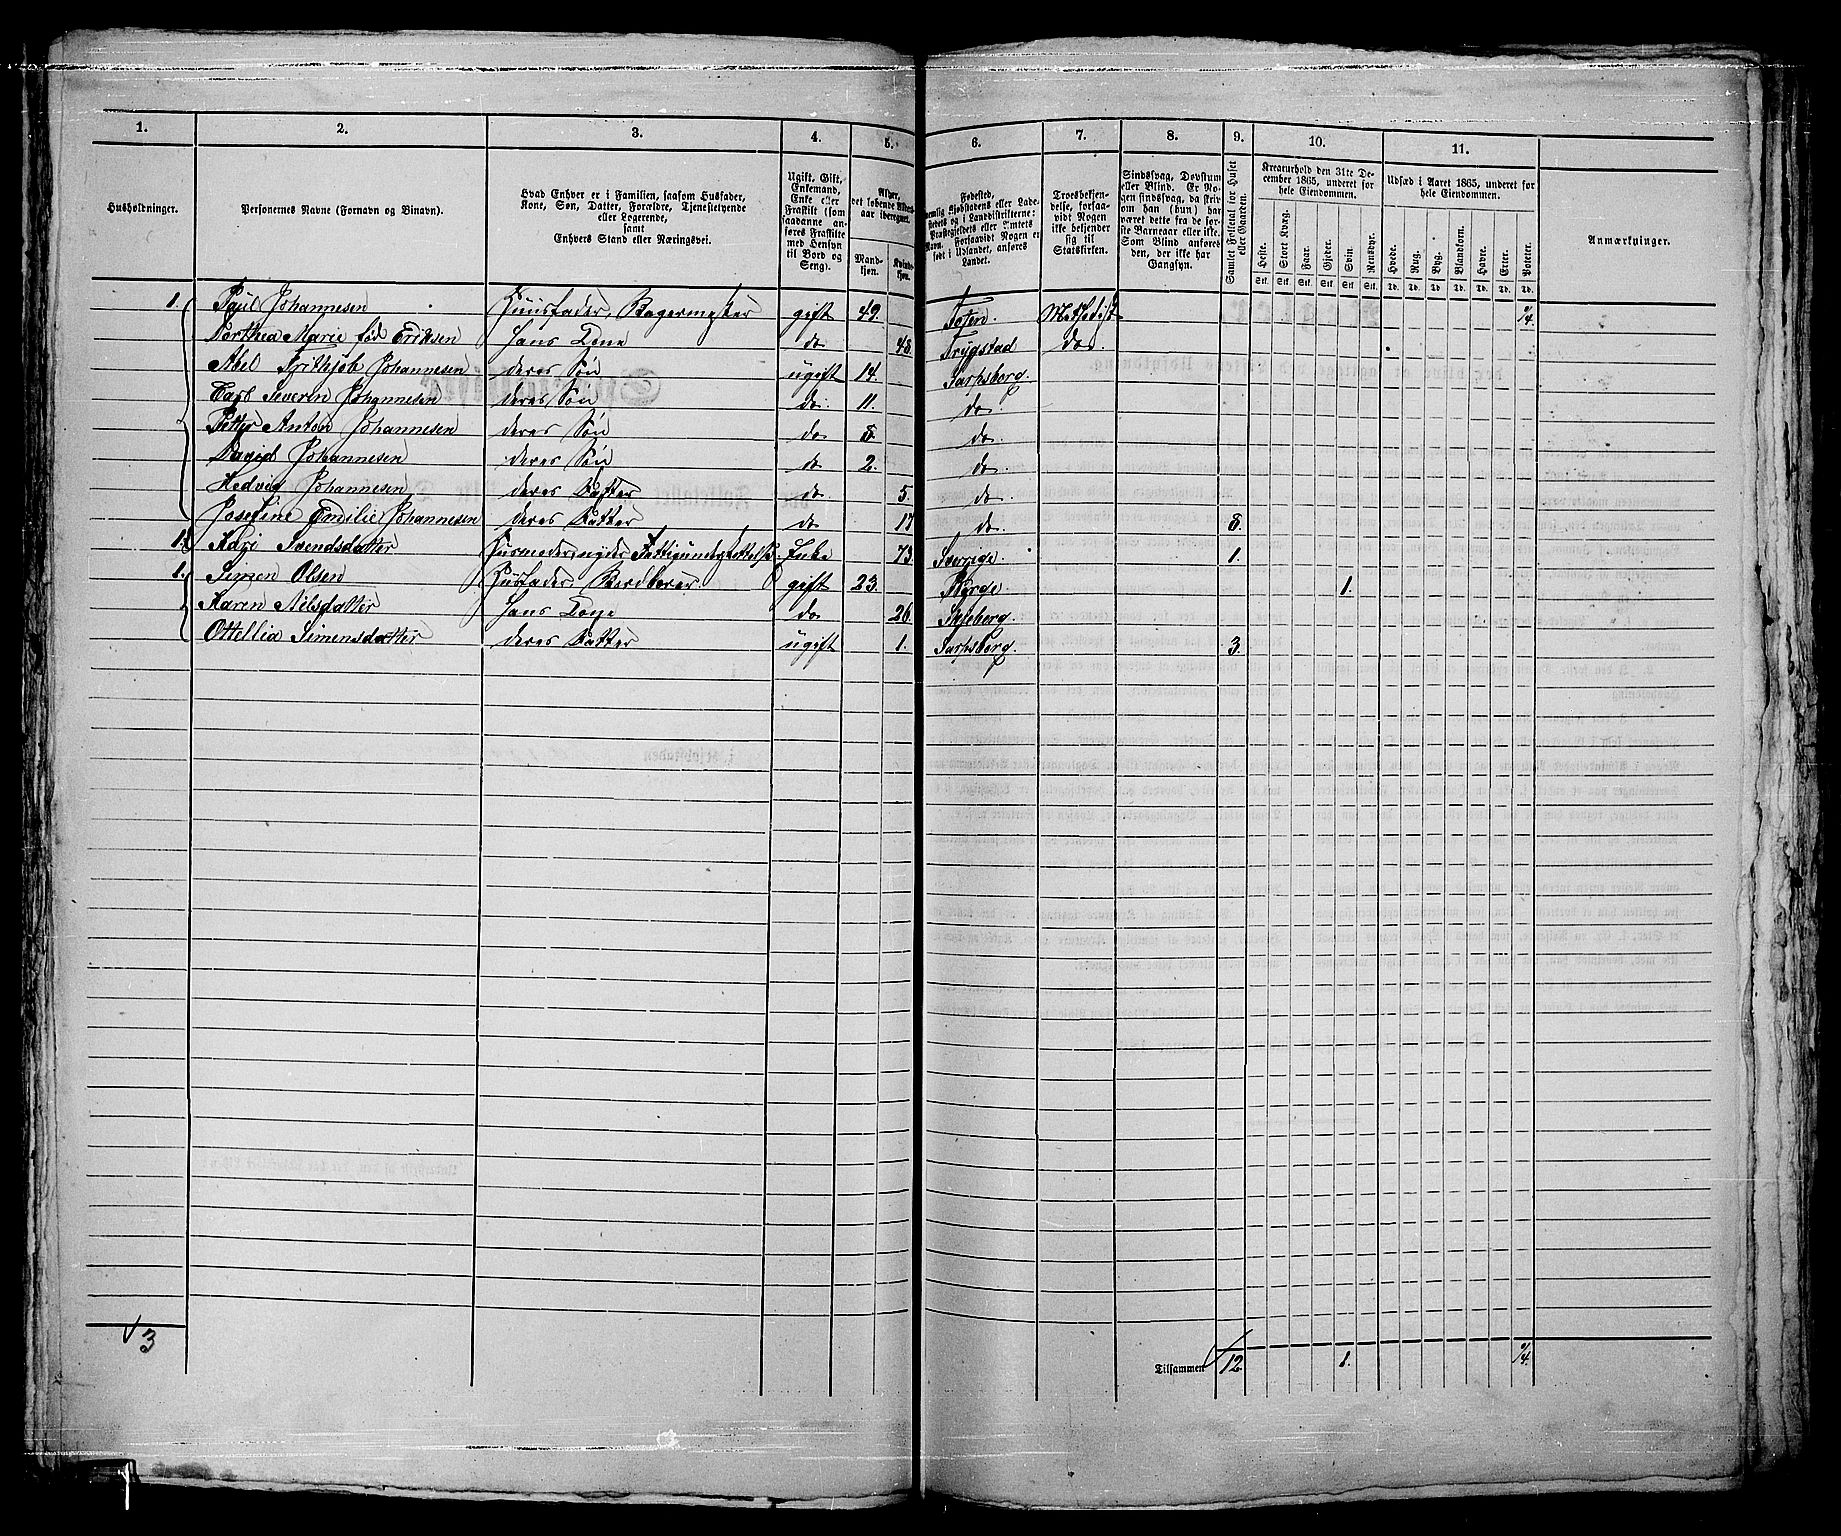 1. 2. 3. 4. 5. 6. 7. 8. 9. 10. 11.
Husholdninger.
Personernes Navne (Fornavn og Binavn).
Hvad Enhver er i Familien, saasom Husfader,
Kone, Søn, Datter, Forældre, Tjenestetyende
eller Logerende,
samt
Enhvers Stand eller Næringsvei.
Ugift, Gift,
Enkemand,
Enke eller
Fraskilt (som
saadanne an-
føres Fraskilte
med Hensyn
til Bord og
Seng).
Alder,
det løbende Alders-
aar iberegnet.
Mand-
kjøn.
Kvinde-
kjøn.
Fødested,
nemlig Kjøbstadens eller Lade-
stedets og i Landdistrikterne:
Præstegjeldets eller Amtets
Navn. Forsaavidt Nogen er
født i Udlandet, anføres
Landet.
Troesbekjen-
delse, forsaa-
vidt Nogen
ikke bekjender
sig til
Statskirken.
Sindssvag, Døvstum
eller Blind. Er No-
gen sindssvag, da skriv
om han (hun) har
været dette fra de før-
ste Barneaar eller ikke.
Som Blind anføres
den, der ikke har
Gangsyn.
Samlet Folketal for Huset
eller Gaarden.
Kreaturhold den 31te De-
cember 1865, underet for
hele Eiendommen.
Heste. Stort Kvæg. Faar. Gjeder. Svin. Rensdyr.
Stk. Stk. Stk. Stk. Stk. Stk.
Udsæd i Aaret 1865, underet for
hele Eiendommen.
Hvede. Rug. Byg. Blandkorn. Havre. Erter. Poteter.
Td. Td. Td. Td. Td. Td. Td.
Anmærkninger.
1. Paul Johannesen Huusfader, Bagermester gift 49. Toten. Methodist 1/4.
Dorthea Marie fød Eriksen Hans Kone do 48. Trygstad do.
Abel Frithjob Johannesen deres Søn ugift 14. Sarpsborg.
Carl Severin Johannesen deres Søn do. 11. do
Petter Anton Johannesen deres Søn do 8. do
David Johannesen deres Søn do 2. do.
Hedvig Johannesen deres Datter do 5. do
Josefine Emilie Johannesen deres Datter do 17 do. 8.
1. Kari Svendsdatter Husmoder, nyder Fattigunderstøttelse Enke 73. Sverrige. 1.
1. Simen Olsen Husfader, Bordbærer gift 23. Borge. 1.
Karen Nilsdatter Hans Kone do 26. Skjeberg.
Ottellia Simensdatter deres Datter ugift 1. Sarpsborg. 3.
3
Tilsammen 12. 1. 1/4.